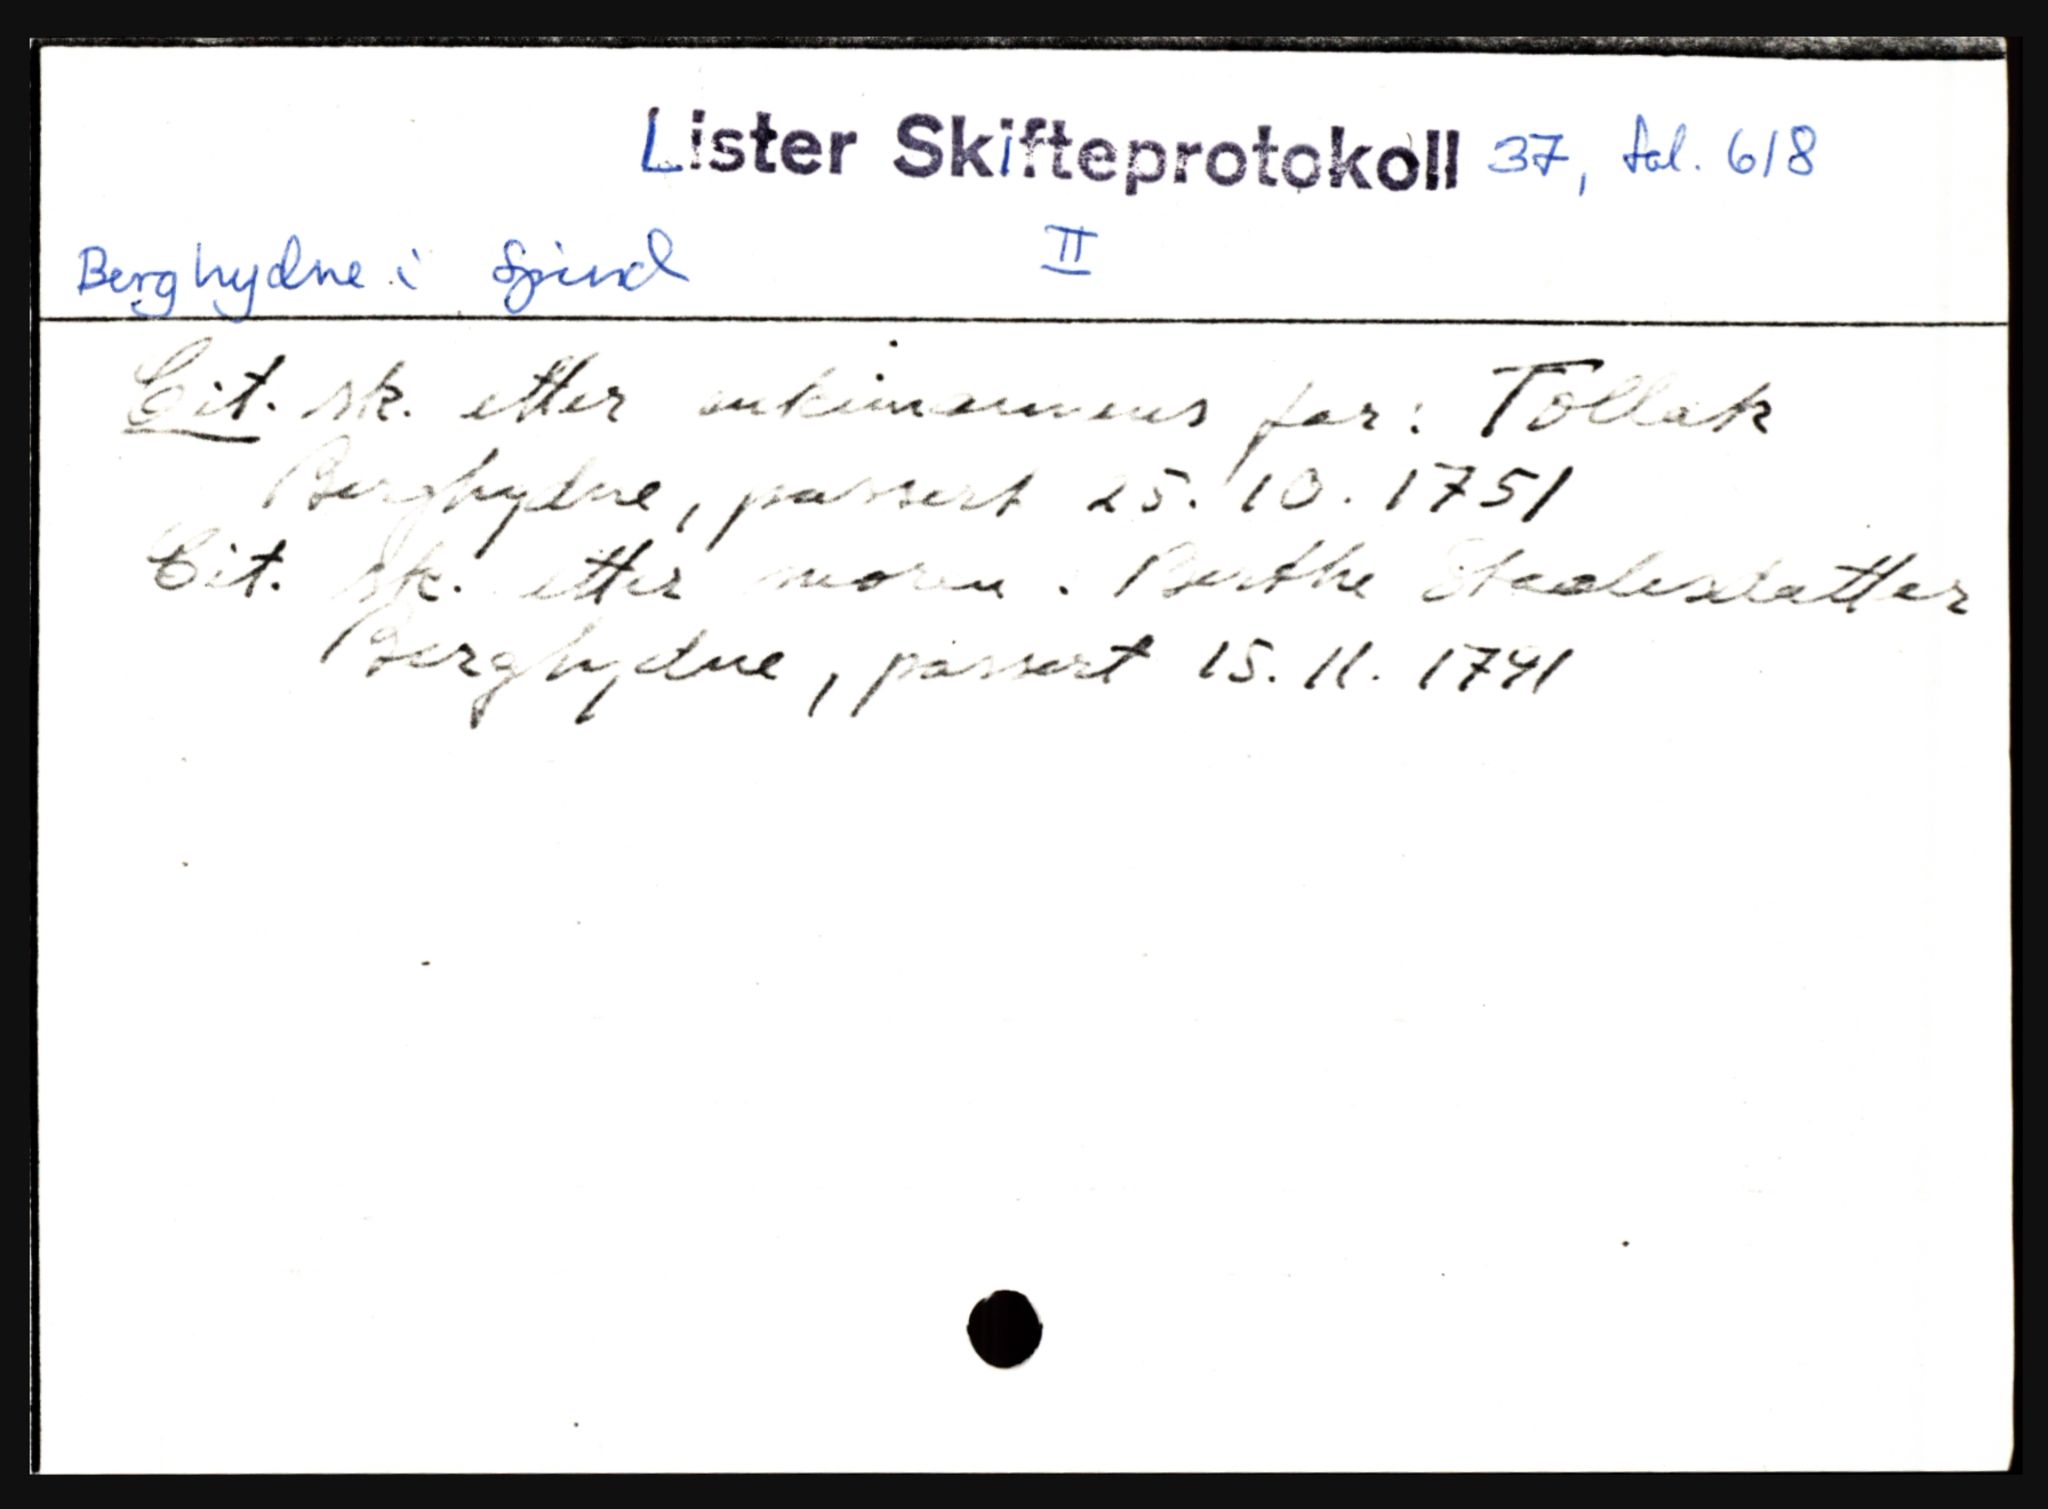 Lister Skifteprotokoll 37, fol. 618
Berghydne i Spind II
Cit. sk. etter enkemannens far: Tollak
Berghydne, passert 25. 10. 1751
Cit. sk. etter moren. Berthe Staalesdatter
Berghydne, passert 15. 11. 1741